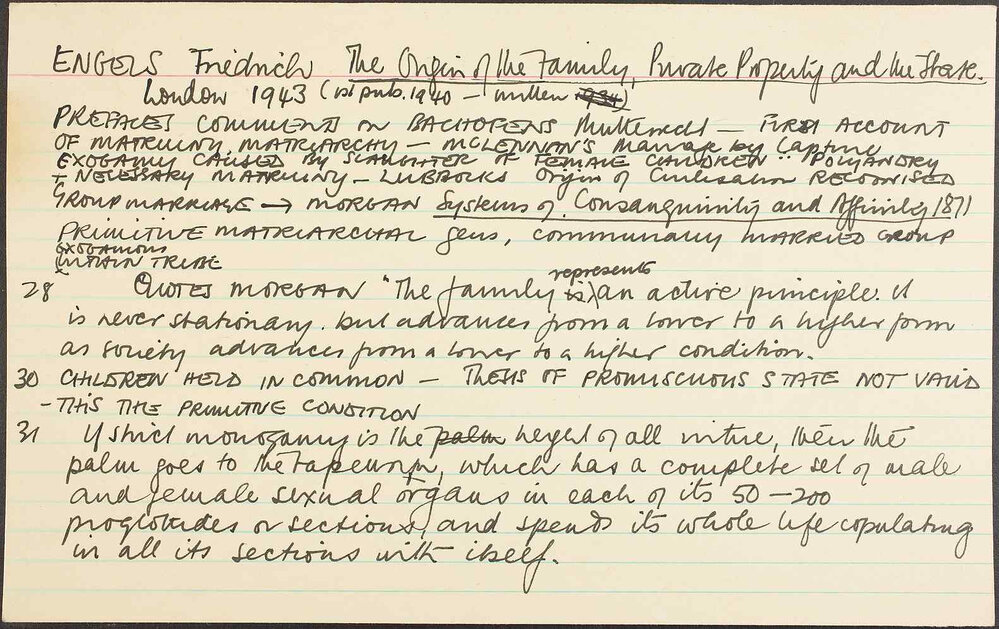 ENGELS Friedrich The Origin of the Family, Private Property and the State.
London 1943 (1st pub. 1940 — written 1934)
PREFACES COMMENTS ON BACHOFENS Mutterrecht — FIRST ACCOUNT
OF MATRILINY, MATRIARCHY — MCLENNAN'S Marriage by Capture
EXOGAMY CAUSED BY SLAUGHTER OF FEMALE CHILDREN ∴ POLYANDRY
+ NECESSARY MATRILINY — LUBBOCKS Origin of Civilisation RECOGNISED
GROUP MARRIAGE → MORGAN Systems of Consanguinity and Affinity 1871
PRIMITIVE MATRIARCHAL gens, communally MARRIED GROUP
EXOGAMOUS
WITHIN TRIBE
represents
28 QUOTES MORGAN "The family is) an active principle. It
is never stationary. but advances from a lower to a higher form
as society advances from a lower to a higher condition.
30 CHILDREN HELD IN COMMON — THESIS OF PROMISCUOUS STATE NOT VALID
- THIS THE PRIMITIVE CONDITION
31 If strict monogamy is the palm height of all virtue, then the
palm goes to the tapeworm, which has a complete set of male
and female sexual organs in each of its 50 — 200
proglottides or sections, and spends its whole life copulating
in all its sections with itself.